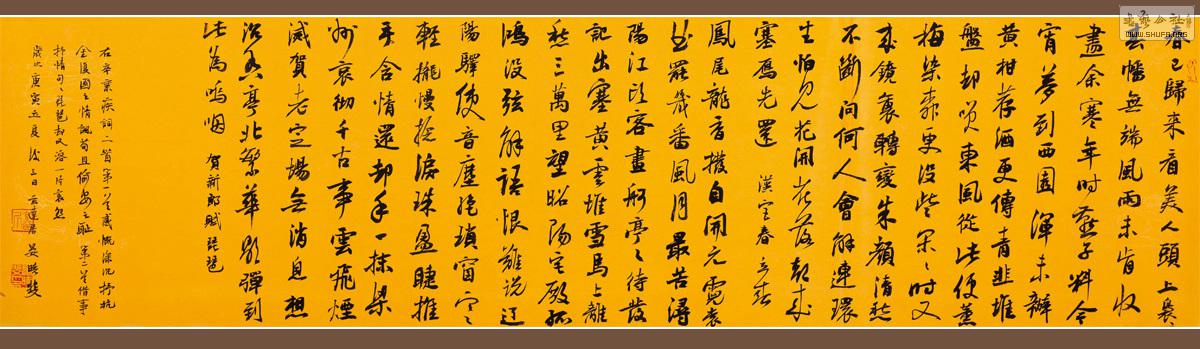 春已歸來看美人頭上裊々
春幡無端風雨未肯收
盡余寒年時燕子料今
宵夢到西園渾未辦
黃柑薦酒更傳青韭堆
盤却笑東風從此便薰
梅染柳更沒些閑々時又
來鏡裏轉變朱顏清愁
不斷問何人會解連環
生怕見花開花落朝來
塞雁先還 漢宮春 立春
鳳尾龍香撥自開元霓裳
曲罷幾番風月最苦潯
陽江頭客畫舸亭々待發
記出塞黃雲堆雪馬上離
愁三萬里望昭陽宮殿孤
鴻沒弦解語恨難說遼
陽驛使音塵絕瑣窗寒々
輕攏慢撚淚珠盈睫推
手含情還却手一抹梁
州哀徹千古事雲飛煙
滅賀老定場無消息想
沉香亭北繁華歇彈到
此為嗚咽 賀新郎賦琵琶
右辛棄疾詞二首第一首感慨深沉抒抗
金復國之情諷苟且偷安之恥第二首借事
抒情句々琵琶却又溶一片哀怨
歲次庚寅立夏後三日
WWW.SHUFA.ORG